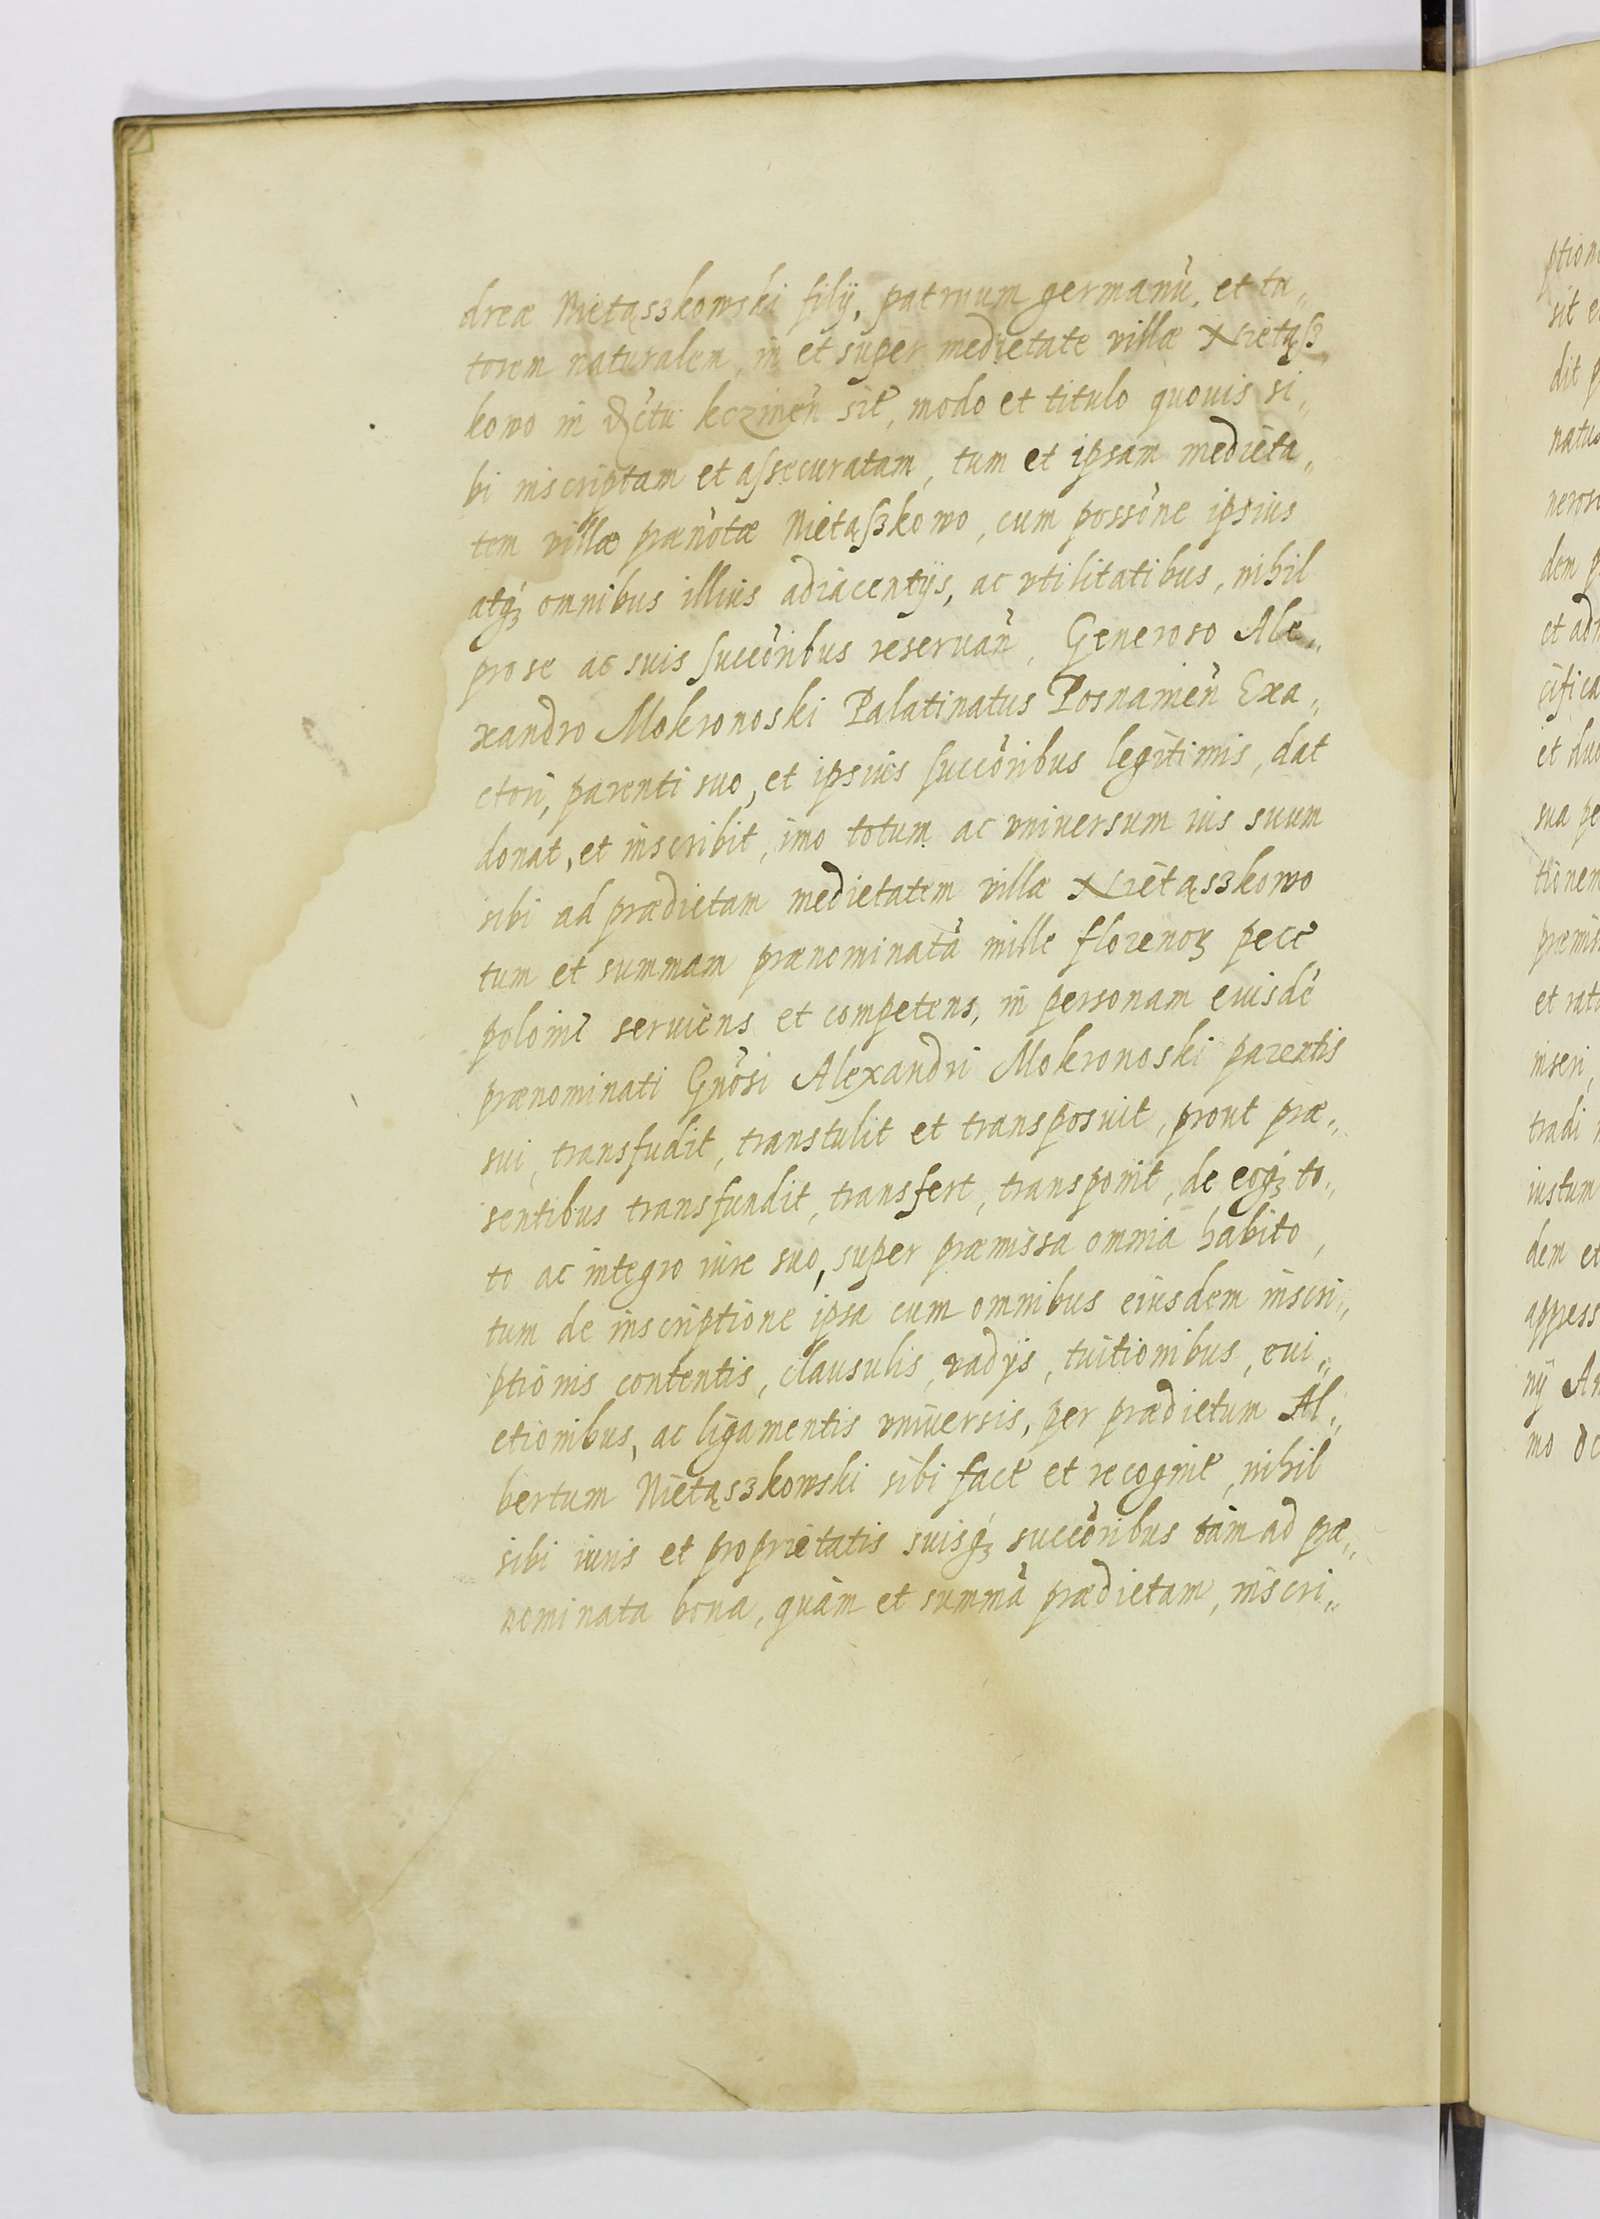 dreæ Nietąszkowski filÿ, patruum germanū, et tu„
torem naturalem, in et super medietate villæ Nietąſz
kowo in dctu kczinen̄ sit̄, modo et titulo quouis si„
bi inscriptam et aſsecuratam, tum et ipsam medieta„
tem villæ præn̄otæ Nietąſzkowo, cum possōne ipsius
atqꝫ omnibus illius adiacentÿs, ac vtilitatibus, nihil
pro se ac suis ſuccōribus reseruan̄, Generoso Ale„
xandro Mokronoski Palatinatus Posnanien̄ Exa„
ctori, parenti suo, et ipsius ſuccōribus legitimis, dat
donat, et inscribit, imo totum ac vniuersum ius suum
sibi ad prædictam medietatem villæ Nietąszkowo
tum et summam prænominatā mille florenoꝝ pecc̄
polonic̄ seruiens et competens, in personam eiusdē
prænominati Gn̄osi Alexandri Mokronoski parentis
sui, transfudit, transtulit et transposuit, prout præ„
sentibus transfundit, transfert, transponit, de eoqꝫ to„
to ac integro iure suo, super præmissa omnia habito,
tum de inscriptione ipsa cum omnibus eiusdem inscri„
ptionis contentis, clausulis, vadÿs, tuitionibus, eui„
ctionibus, ac ligamentis vniuersis, per prædictum Al„
bertum Nietąszkowski sibi fact̄ et recognit̄, nihil
sibi iuris et proprietatis suisqꝫ succōribus tàm ad præ„
nominata bona, quàm et summā prædictam, inscri„
ption
sit
dit
natu
neros
dem
et
cifica
et duo
sua pe
tionem
præmis
et rat
inseri,
tradi
iustum
dem et
appress
nÿ An
mo